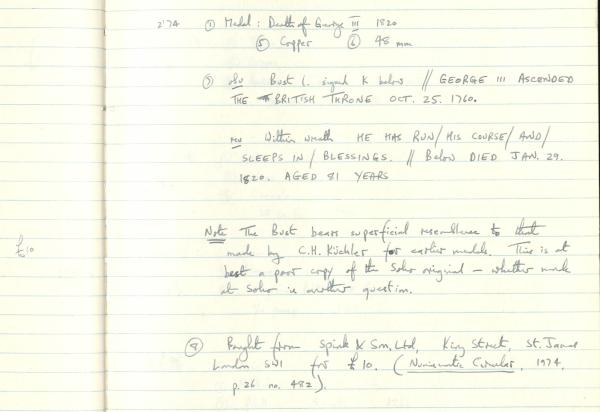 2'74 ① Medal: Death of George III 1820
⑤ Copper ⑥ 48 mm
⑦ obv Bust l. signed K below // GEORGE III ASCENDED
THE BRITISH THRONE OCT. 25. 1760.
rev Within wreath HE HAS RUN/ HIS COURSE/ AND/
SLEEPS IN/ BLESSINGS. // Below DIED JAN. 29.
1820. AGED 81 YEARS
Note The Bust bears superficial resemblance to that
made by C.H. Küchler for earlier medals. This is at
£10 best a poor copy of the Soho original – whether made
at Soho is another question.
⑧ Bought from Spink & Son. Ltd, King Street, St. James
London SW1 for £10. (Numismatic Circular, 1974,
p.26 no. 482).